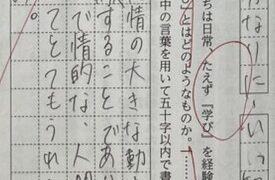 かなりに、い
ちは日常、たえず『学び』を経験
ことはどのようなものか。
中の言葉を用いて五十字以内で書
情の大きな動
することであ
で情的な、人間
てとてもうれ
。